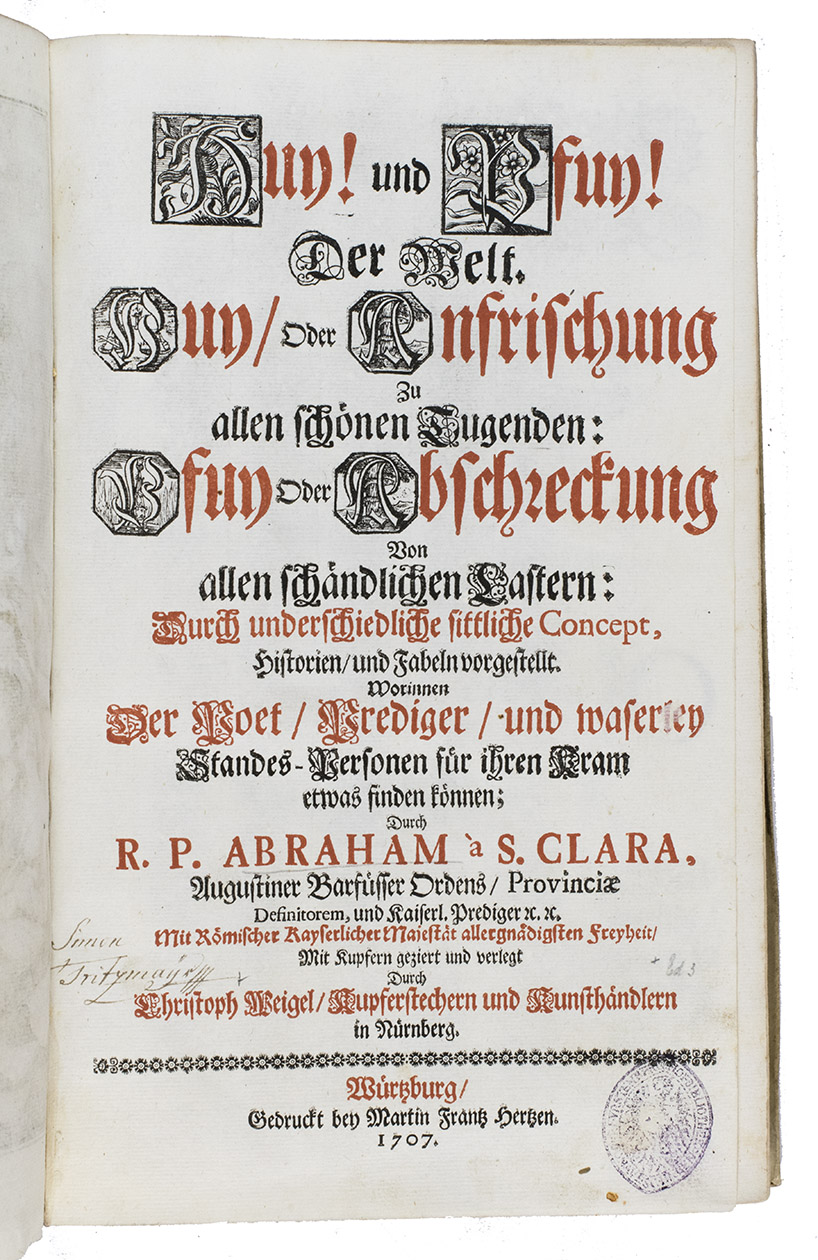 Huy! und Pfuy!
Der Welt.
Huy/ Oder Anfrischung
Zu
allen schönen Tugenden:
Pfuy Oder Abschreckung
Von
allen schändlichen Lastern:
Durch underschiedliche sittliche Concept,
Historien/ und Fabeln vorgestellt.
Worinnen
Der Poet/ Prediger/ und waserley
Standes-Personen für ihren Kram
etwas finden können;
Durch
R. P. ABRAHAM à S. CLARA,
Augustiner Barfüsser Ordens/ Provinciæ
Definitorem, und Kaiserl. Prediger ꝛc. ꝛc.
Mit Römischer Kayserlicher Majestät allergnädigsten Freyheit/
Mit Kupfern geziert und verlegt
Durch
Christoph Weigel/ Kupferstechern und Kunsthändlern
in Nürnberg.
Würtzburg/
Gedruckt bey Martin Frantz Hertzen.
1707.